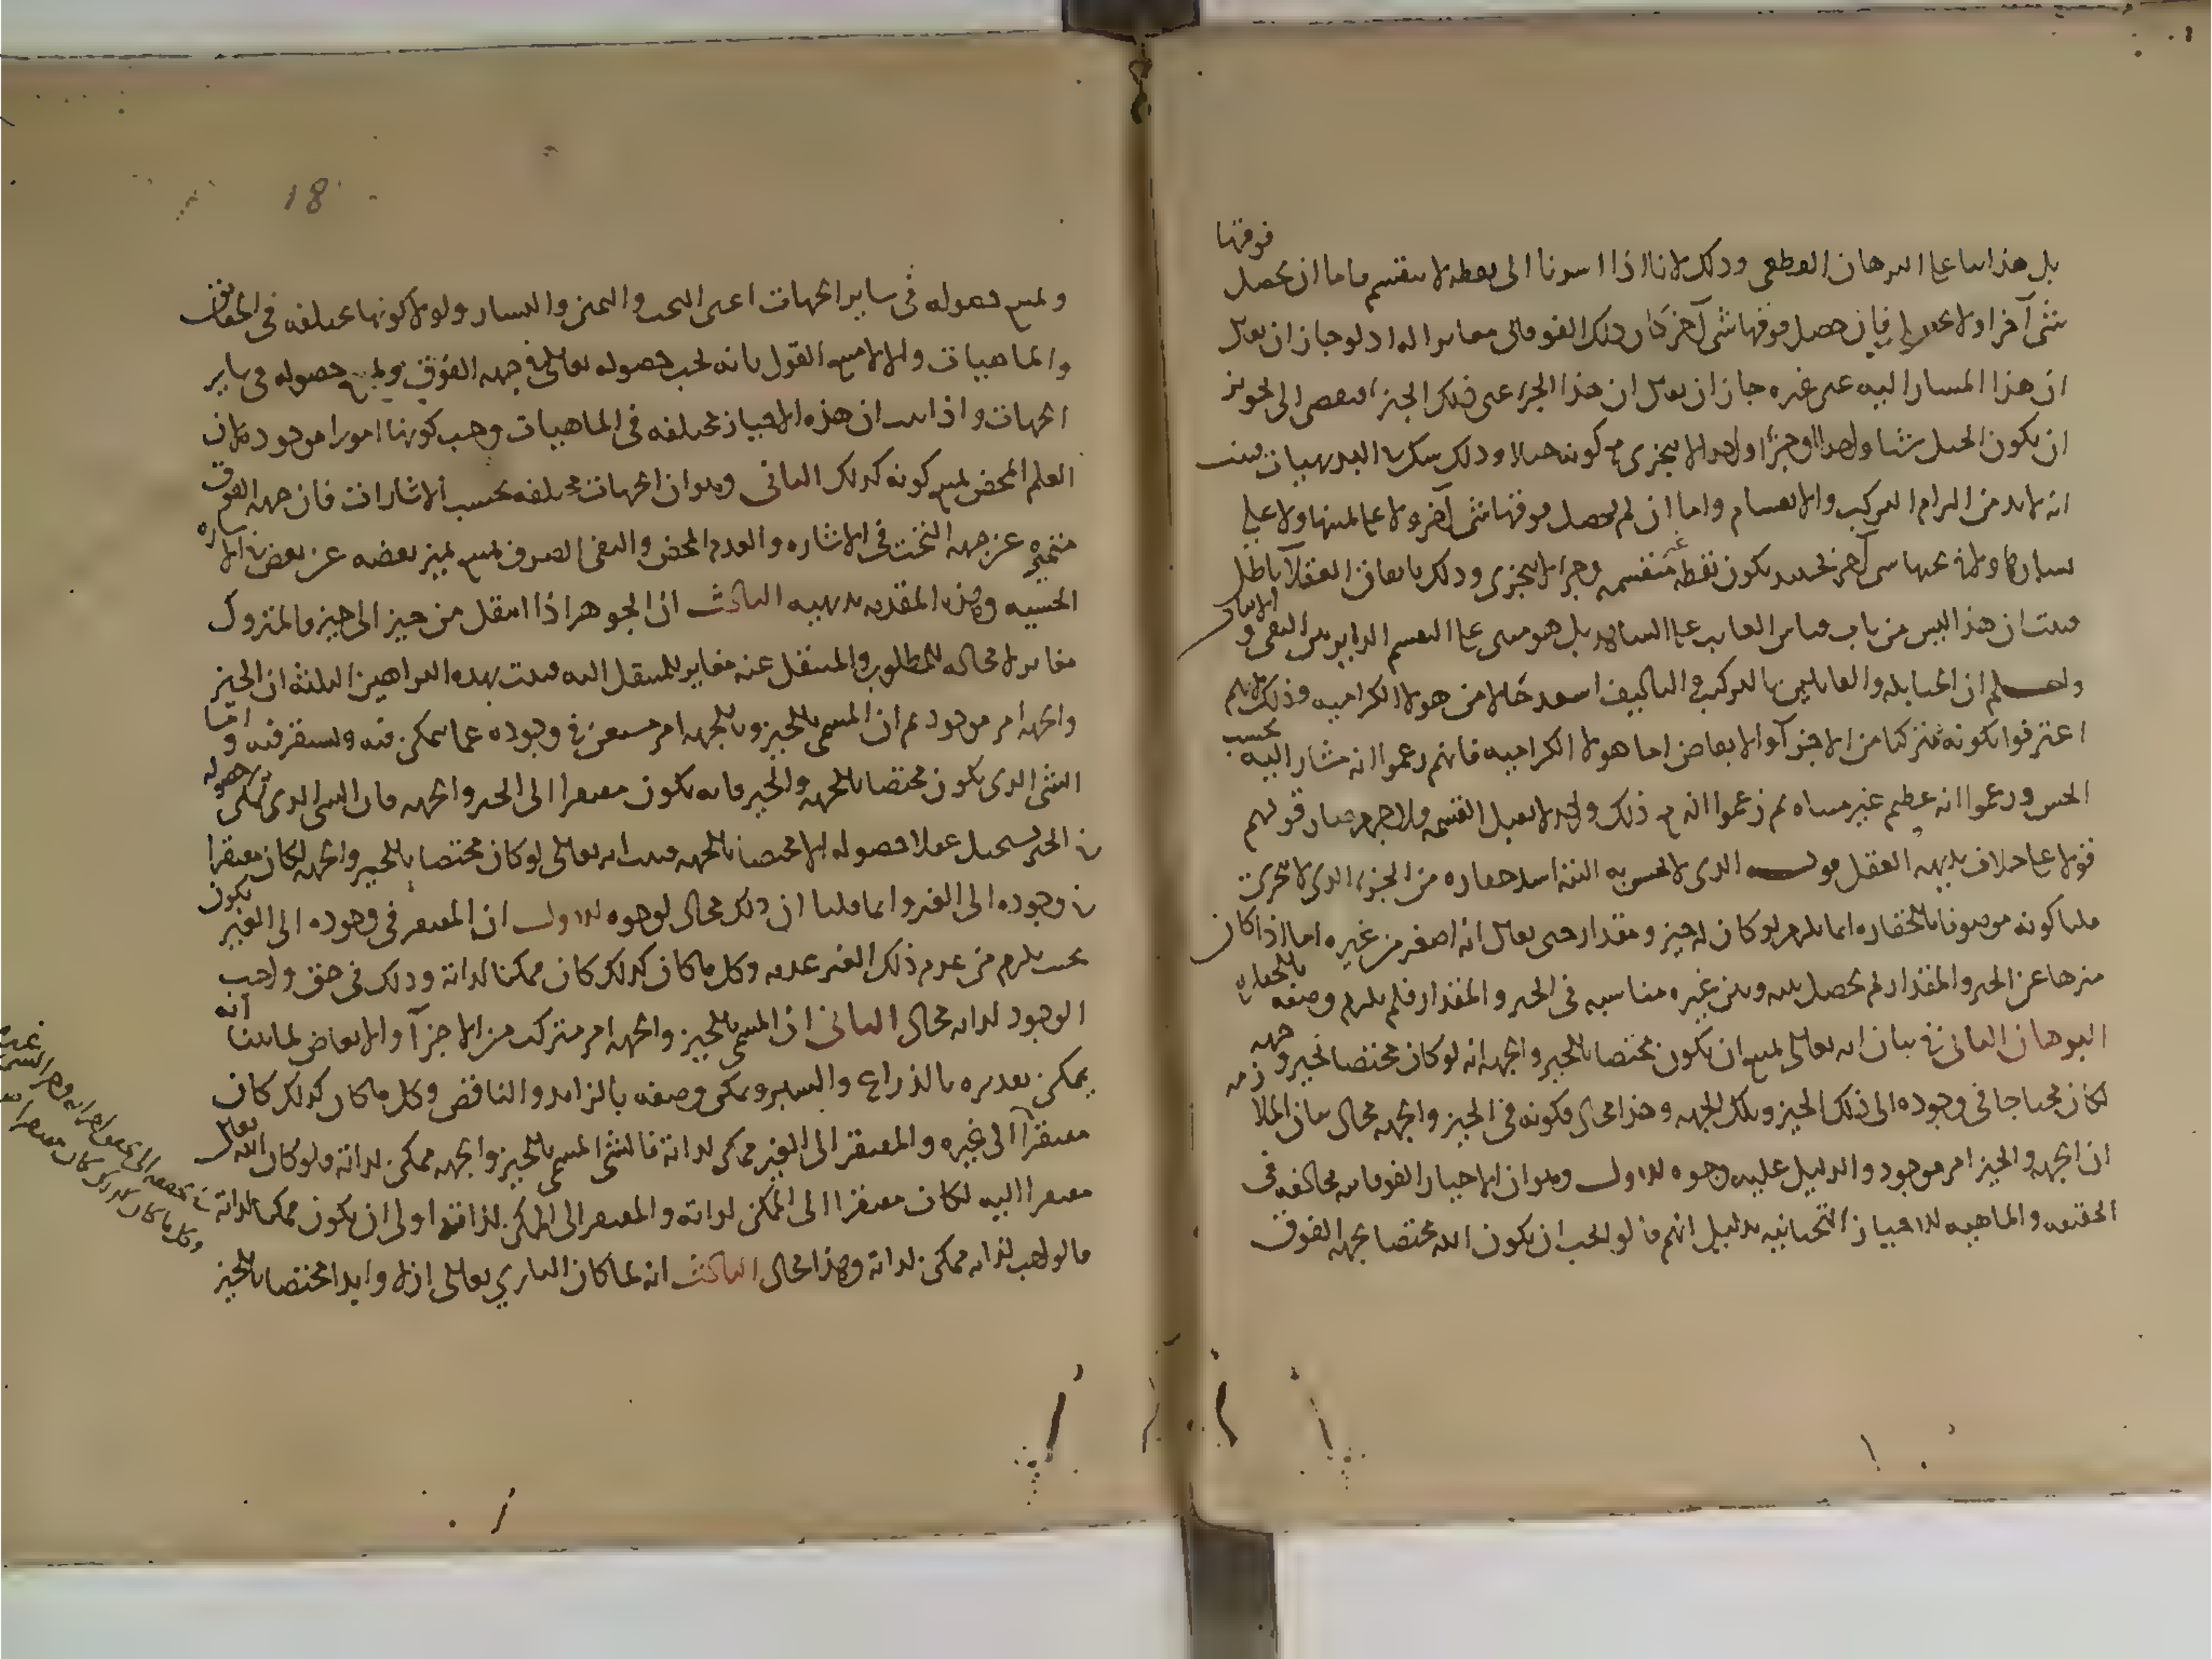 فوقها
بل هذا بنا على البرهان القطعى وذلك لانا اذا اشرنا الى نقطه لا تنقسم فاما ان يحصل
شى آخر او لا يحصل فان حصل فوقها شى آخر كان ذلك الفوقانى مغايرا له اذ لو جاز ان يقال
ان هذا المشار اليه عين غيره جاز ان يقال ان هذا الجزء عين ذلك الجزء فيفضى الى تجويز
ان يكون الجبل شيا واحدا وجزءا واحدا لا يتجزى مع كونه جبلا وذلك شك فى البديهيات فثبت
انه لا بد من التزام التركيب والانقسام واما ان لم يحصل فوقها شى آخر ولا على يمينها ولا على
يسارها ولا من تحتها شى آخر فحينئذ يكون نقطه غير منقسمه وجزا لا يتجزى وذلك باتفاق العقلآ باطل
فثبت ان هذا ليس من باب قياس الغايب على الشاهد بل هو مبنى على التقسيم الداير بين النفى و الاثبات
واعلم ان الحنابله والقايلين بالتركيب والتاليف اسعد حالا من هولا الكراميه وذلك لانهم
اعترفوا بكونه مركبا من الاجزآ والابعاض اما هولا الكراميه فانهم زعموا انه مشار اليه بحسب
الحس وزعموا انه عظيم غير متناه ثم زعموا انه مع ذلك واحد لا يقبل القسمه ولا جرم صار قولهم
قولا على خلاف بديهه العقل قوله الذى لا يحس به البته اشد حقاره من الجزء الذى لا يتجزى
قلنا كونه موصوفا بالحقاره انما يلزم لو كان له حيز ومقدار حتى يقال انه اصغر من غيره اما اذا كان
منزها عن الحيز والمقدار لم يحصل بينه وبين غيره مناسبه فى الحيز والمقدار فلم يلزم وصفه بالحقاره
البرهان الثانى فى بيان انه تعالى يمتنع ان يكون مختصا بالحيز والجهه انه لو كان مختصا بحيز و جهه
لكان محتاجا فى وجوده الى ذلك الحيز وتلك الجهه وهذا محال فكونه فى الحيز والجهه محال بيان الملازمه
ان الجهه والحيز امر موجود والدليل عليه وجوه الاول وهو ان الاحياز الفوقانيه مخالفه فى
الحقيقه والماهيه للاحياز التحتانيه بدليل انهم قالوا يجب ان يكون الله مختصا بجهه الفوق
18
ويمتنع حصوله فى ساير الجهات اعنى التحت واليمين واليسار ولولا كونها مختلفه فى الحقايق
والماهيات والا لامتنع القول بانه يجب حصوله تعالى فى جهه الفوق ويمتنع حصوله فى ساير
الجهات واذا ثبت ان هذه الاحياز مختلفه فى الماهيات وجب كونها امورا موجوده لان
العدم المحض يمتنع كونه كذلك الثانى وهو ان الجهات مختلفه بحسب الاشارات فان جهه الفوق
متميزه عن جهه التحت فى الاشاره والعدم المحض والنفى الصرف يمتنع تميز بعضه عن بعض فى الاشاره
الحسيه وهذه المقدمه بديهيه الثالث ان الجوهر اذا انتقل من حيز الى حيز فالمتروك
مغاير لا محاله للمطلوب والمنتقل عنه مغاير للمنتقل اليه فثبت بهذه البراهين الثلثه ان الحيز
والجهه امر موجود ثم ان المسمى بالحيز وبالجهه امر مستغن فى وجوده عما يتمكن فيه ويستقر فيه و اما
الشى الذى يكون مختصا بالجهه والحيز فانه يكون مفتقرا الى الحيز والجهه فان الشى الذى يمكن حصوله
فى الحيز يستحيل عقلا حصوله الا مختصا بالجهه فثبت انه تعالى لو كان مختصا بالحيز والجهه لكان مفتقرا
فى وجوده الى الغير وانما قلنا ان ذلك محال لوجوه الاول ان المفتقر فى وجوده الى الغير يكون
بحيث يلزم من عدم ذلك الغير عدمه وكل ما كان كذلك كان ممكنا لذاته وذلك فى حق واجب
الوجود لذاته محال الثانى ان المسمى بالحيز والجهه امر متركب من الاجزآ والابعاض لما بينا انه
يمكن تقديره بالذراع والشبر ويمكن وصفه بالزايد والناقص وكل ما كان كذلك كان
مفتقرا الى غيره والمفتقر الى الغير ممكن لذاته فالشى المسمى بالحيز والجهه ممكن لذاته ولو كان الله تعالى
مفتقرا اليه لكان مفتقرا الى الممكن لذاته والمفتقر الى الممكن لذاته اولى ان يكون ممكنا لذاته
فالواجب لذاته ممكن لذاته وهذا محال الثالث انه لما كان البارى تعالى ازلا وابدا مختصا بالحيز
وكل ما كان كذلك كان مفتقرا